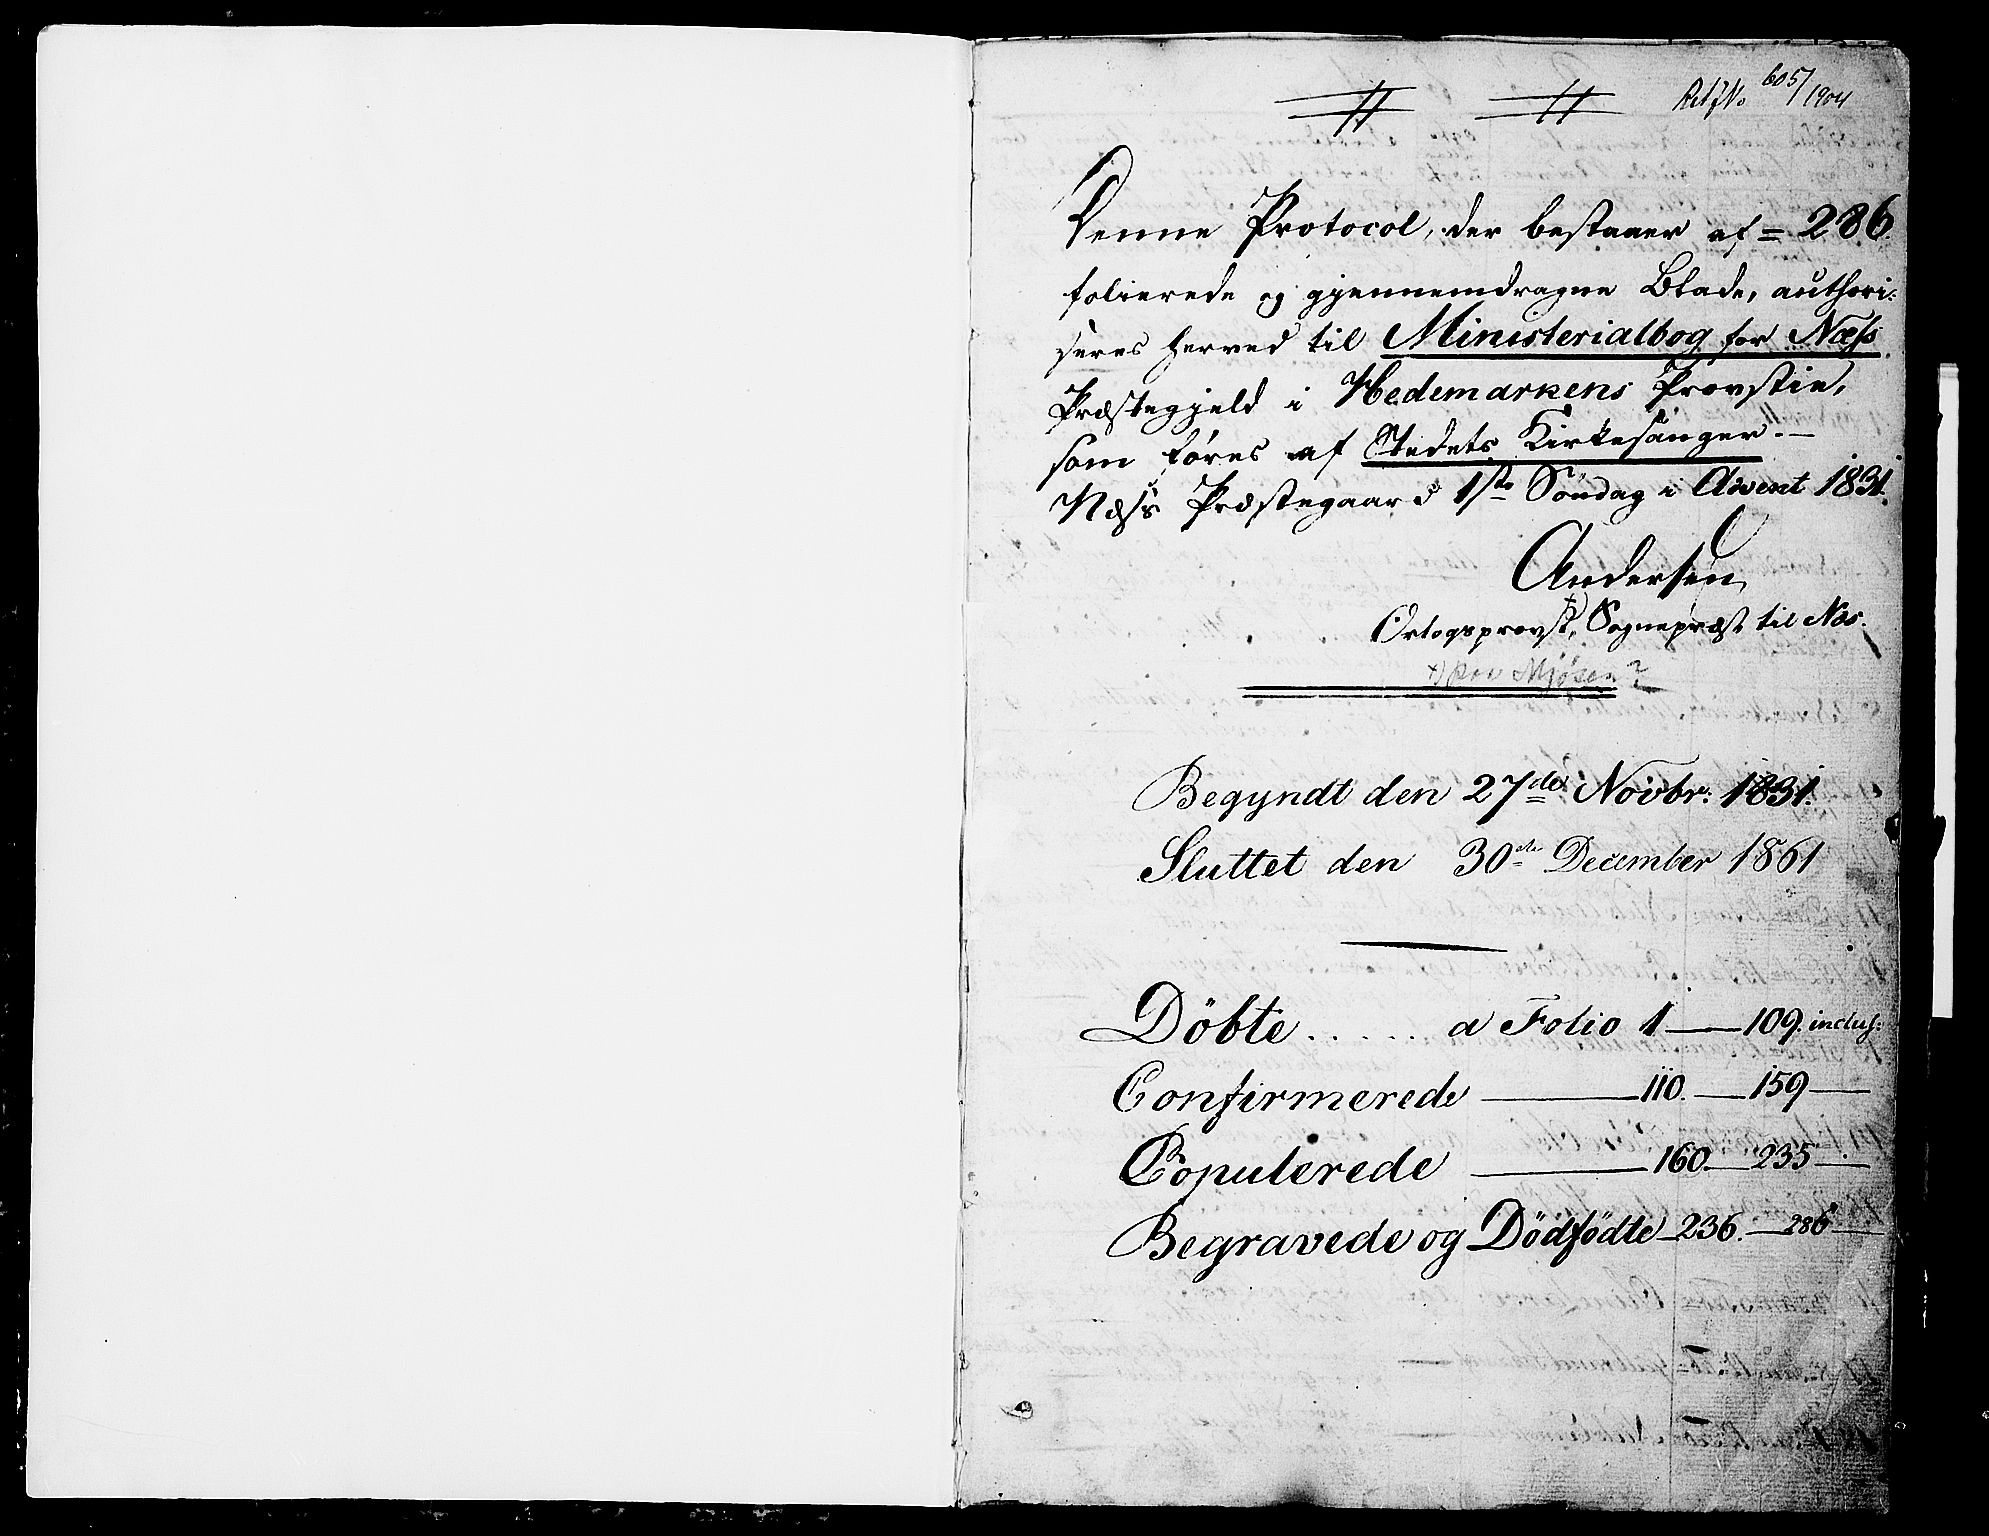 605/1904
Denne Protocol, der bestaaer af = 286
folierede og gjennemdragne Blade, authori:
seres herved til Ministerialbog for Næss
Præstegjeld i Hedemarkens Provstie,
som føres af Stedets Kirkesanger. —
Næss Præstegaard 1ste Søndag i Advent 1831.
Andersen
Orlogsprovst, Sognepræst til Næs.
Begyndt den 27de Novbr: 1831.
Sluttet den 30de December 1861
Döbte ..... a Folio 1 — 109. inclus:
Confirmerede — 110. — 159 —
Copulerede — 160. — 235 —
Begravede og Dödfödte — 236. — 286 —